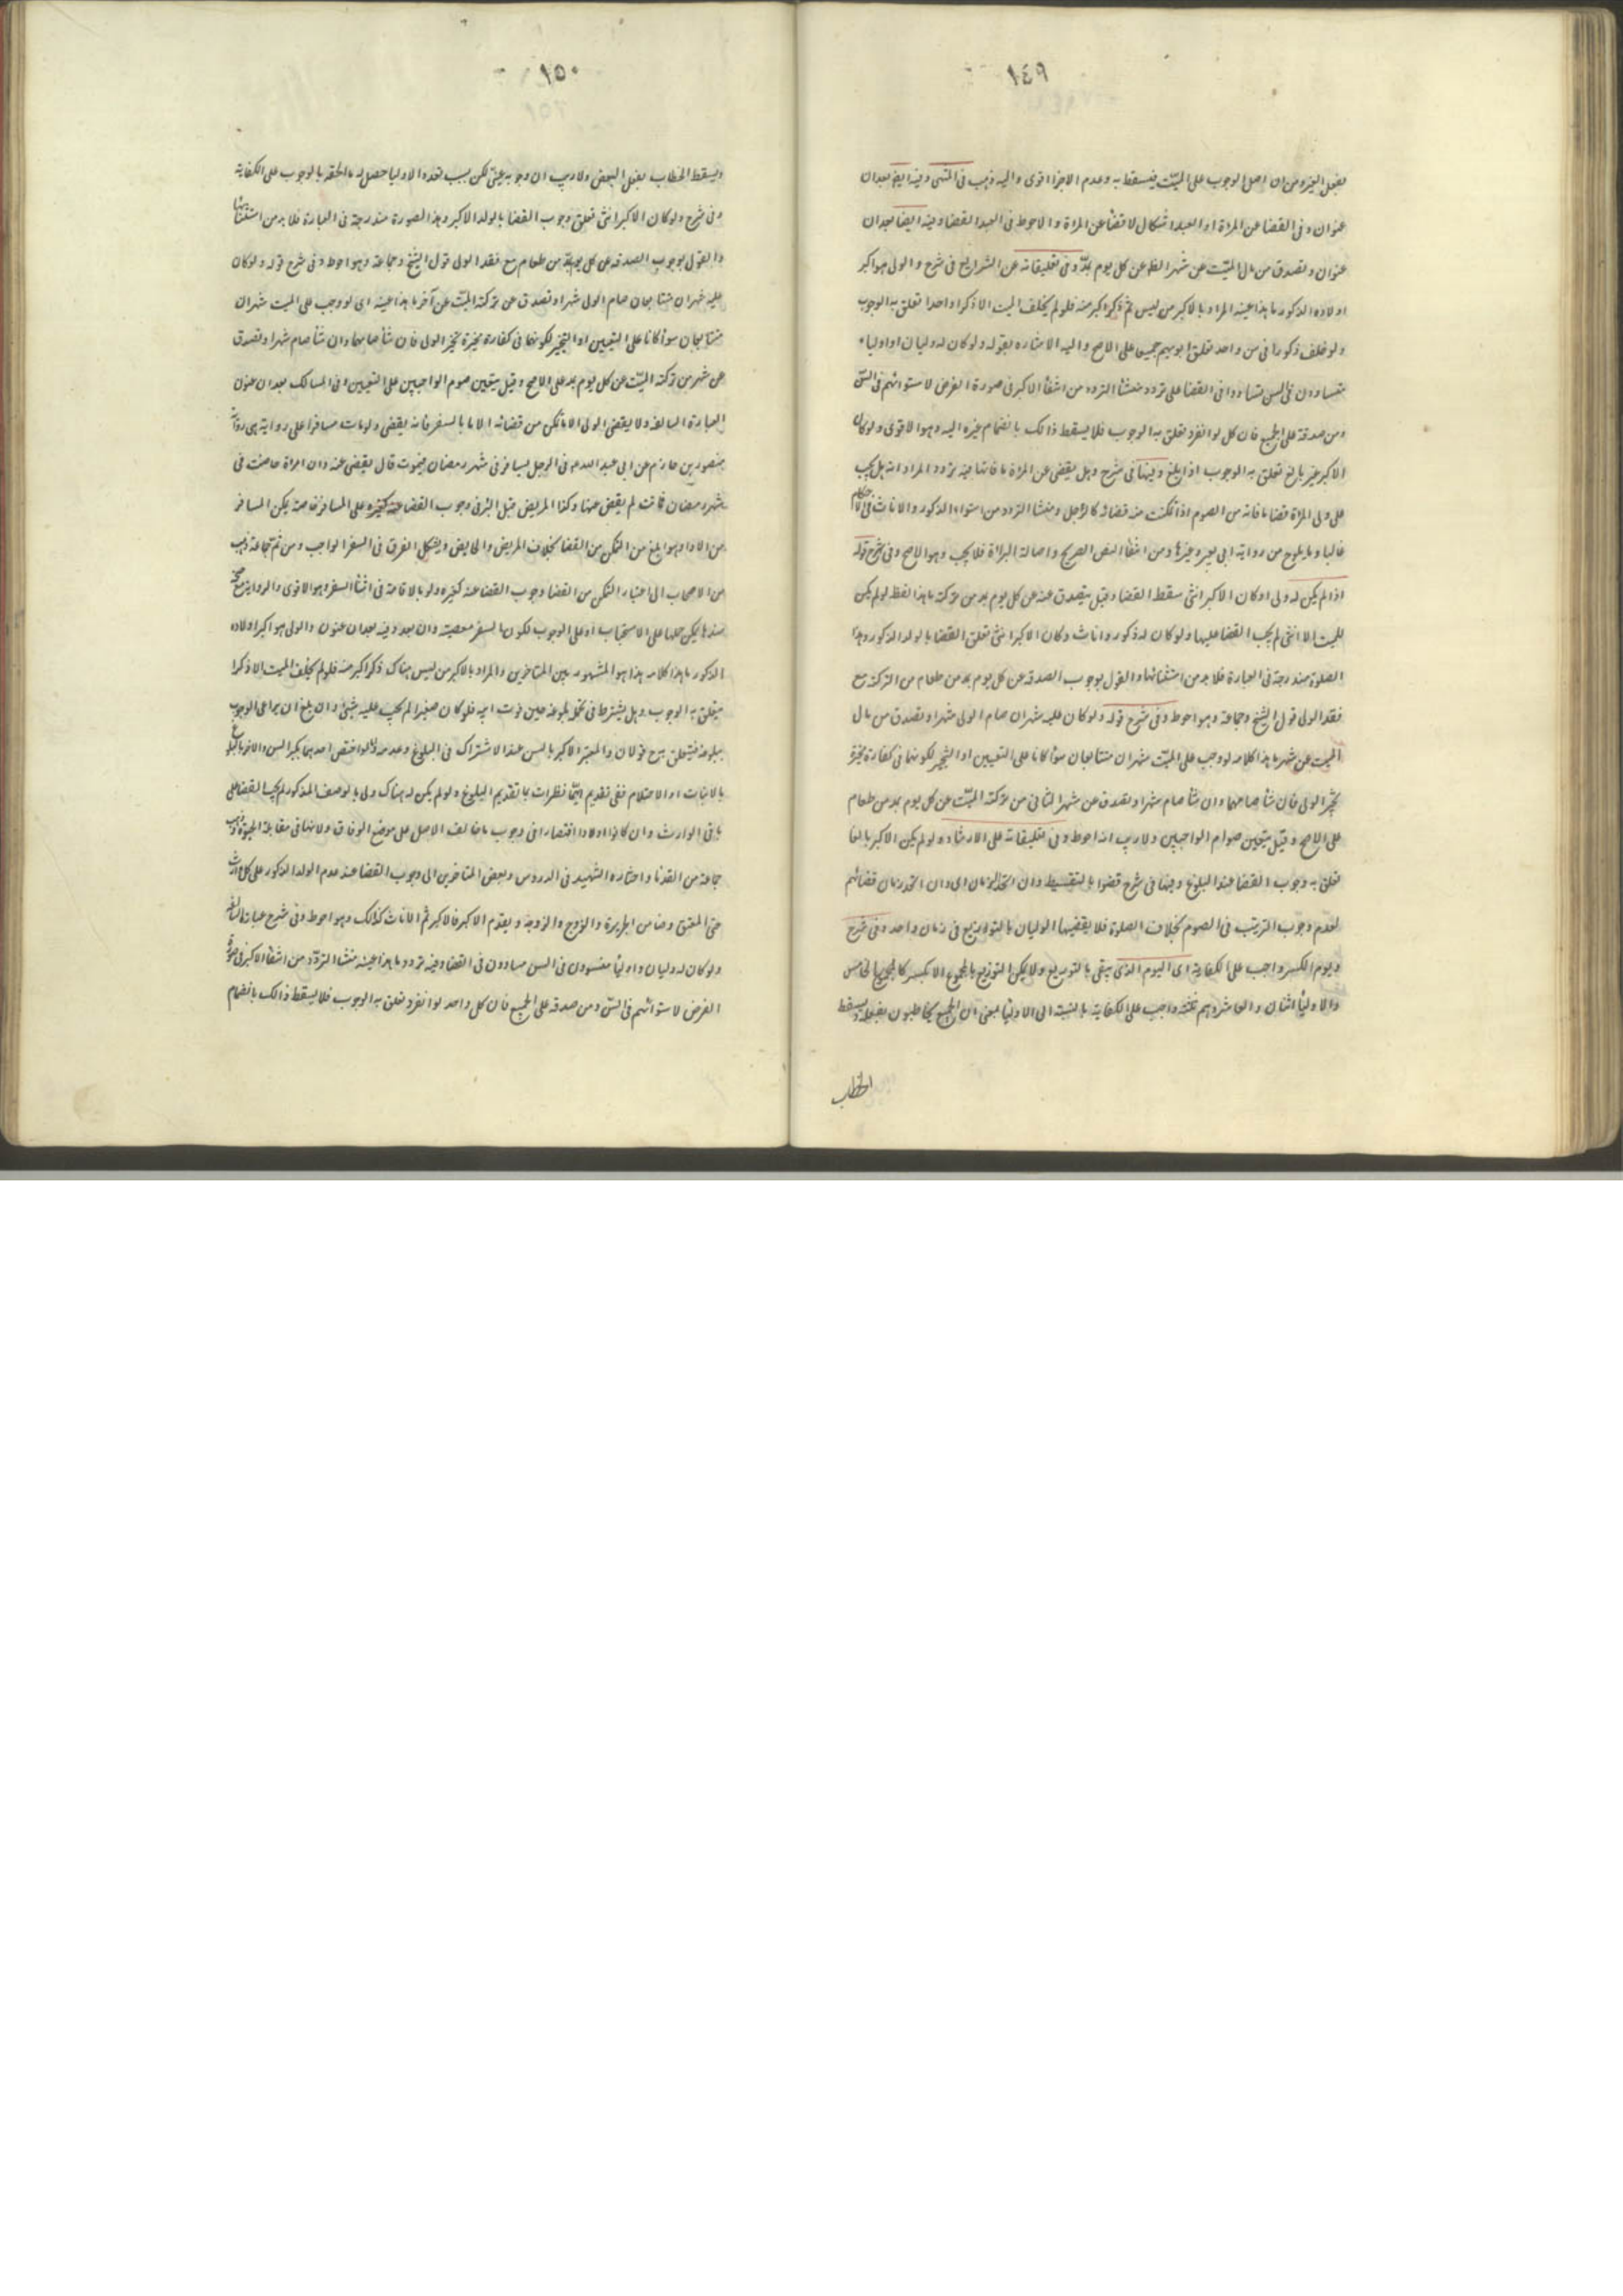 ١٤٩
بفعل الغير ومن ان اصل الوجوب على الميت فيسقط به وعدم الاجزا اقوى واليه ذهب فى المنتهى وفيه ايضا بعد ان
عنوان وفى القضا عن المراة او العبد اشكال لا قضا عن المراة والاحوط فى العبد القضا وفيه ايضا بعد ان
عنوان وتصدق من مال الميت عن شهر عن كل يوم بمد وفى تعليقاته عن الشرايع فى شرح والولى هو اكبر
اولاده الذكور ما هذا عينه المراد بالاكبر من ليس ثم ذكر اكبر منه فلو لم يخلف الميت الا ذكرا واحدا تعلق به الوجوب
ولو خلف ذكورا فى سن واحد تعلق الوجوب بهم جميعا على الاصح واليه الاشاره بقوله ولو كان له وليان او اوليا
متساوون فى السن تساووا فى القضا على تردد منشأ التردد من انتفاء الاكبر فى صورة الفرض لاستوائهم فى السن
ومن صدقه على الجميع فان كل لو انفرد تعلق به الوجوب فلا يسقط ذالك بانضمام غيره اليه وهو الاقوى ولو كان
الاكبر غير بالغ تعلق به الوجوب اذا بلغ وفيها فى شرح وهل يقضى عن المراة ما فاتها فيه تردد المراد انه هل يجب
على ولى المراة قضا ما فاته من الصوم اذا تمكنت منه قضائه كالرجل ومنشا التردد من استواء الذكور والاناث فى الاحكام
غالبا وما يلوح من رواية ابى بصير وغيرها ومن انتفاء النص الصريح واصالة البراة فلا يجب وهو الاصح وفى شرح قوله
اذا لم يكن له ولى او كان الاكبر انثى سقط القضا وقيل يتصدق عنه عن كل يوم بمد من تركته ما هذا لفظه لو لم يكن
للميت الا انثى لم يجب القضا عليها ولو كان له ذكور واناث وكان الاكبر انثى تعلق القضا بالولد الذكور وهذا
الصلوة مندرجة فى العبارة فلا بد من استثنائها والقول بوجوب الصدقه عن كل يوم بمد من طعام من التركة مع
فقد الولى قول الشيخ وجماعة وهو احوط وفى شرح قوله ولو كان عليه شهران صام الولى شهرا وتصدق من مال
الميت عن شهر ما هذا كلامه لو وجب على الميت شهران متتابعان سواء كانا على التعيين او التخيير لكونهما فى كفارة مخيرة
تخير الولى فان شا صامهما وان شا صام شهرا وتصدق عن شهر الثانى من تركته الميت عن كل يوم بمد من طعام
على الاصح وقيل يتعين صوام الواجبين ولا ريب انه احوط وفى تعليقاته على الارشاد ولو لم يكن الاكبر بالغا
تعلق به وجوب القضا عند البلوغ وفيها فى شرح قضوا بالتقسيط وان اتحد الزمان اى وان اتحد زمان قضائهم
لعدم وجوب الترتيب فى الصوم بخلاف الصلوة فلا يقضيها الوليان بالتوزيع فى زمان واحد وفى شرح
ويوم الكسر واجب على الكفاية اى اليوم الذى يبقى بالتوزيع ولا يمكن التوزيع بالجميع الا بكسر كالخامس
والاوليا اثنان والعاشر وهم تسعة واجب على الكفاية بالنسبة الى الاوليا بمعنى ان الجميع يخاطبون بفعله ويسقط
الخطاب
١٥٠
ويسقط الخطاب بفعل البعض ولا ريب ان وجوبه عينى لكن بسبب تعدد الاوليا حصل له ما الحقه بالوجوب على الكفاية
وفى شرح ولو كان الاكبر انثى تعلق وجوب القضا بالولد الاكبر وهذا الصورة مندرجة فى العبارة فلا بد من استثنائها
والقول بوجوب الصدقه عن كل يوم بمد من طعام مع فقد الولى قول الشيخ وجماعة وهو احوط وفى شرح قوله ولو كان
عليه شهران متتابعان صام الولى شهرا وتصدق عن تركته الميت عن آخر ما هذا عينه اى لو وجب على الميت شهران
متتابعان سواء كانا على التعيين او التخيير لكونهما فى كفارة مخيرة تخير الولى فان شا صامهما وان شا صام شهرا وتصدق
عن شهر من تركته الميت عن كل يوم بمد على الاصح وقيل يتعين صوم الواجبين على التعيين وفى المسالك بعد ان عنون
العبارة السالفة ولا يقضى الولى الا ما تمكن من قضائه الا ما بالسفر فانه يقضى ولو مات مسافرا على رواية هى رواية
منصور بن حازم عن ابى عبد الله م فى الرجل يسافر فى شهر رمضان فيموت قال يقضى عنه وان امراة حاضت فى
شهر رمضان فماتت لم يقض عنها وكذا المريض قبل البرء فى وجوب القضا عنه كغيره على المسافر خاصة تمكن المسافر
من الاداء وهو ابلغ من التمكن من القضا بخلاف المريض والحايض ويشكل الفرق فى السفر الواجب ومن ثم جماعة ذهب
من الاصحاب الى اعتبار التمكن من القضا وجوب القضا عنه كغيره ولو بالاقامة فى اثنأ السفر وهو الاقوى والرواية مع
سندها يمكن حملها على الاستحباب او على الوجوب لكون السفر معصية وان بعد وفيه بعد ان عنون والولى هو اكبر اولاده
الذكور ما هذا كلامه هذا هو المشهور بين المتاخرين والمراد بالاكبر من ليس هناك ذكر اكبر منه فلو لم يخلف الميت الا ذكرا
يتعلق به الوجوب وهل يشترط بلوغه حين موت ابيه فلو كان صغيرا لم يجب عليه شيئ وان بلغ ان يراعى الوجوب
ببلوغه فيتعلق به ح قولان والمعتبر الاكبر بالسن عند الاشتراك فى البلوغ وعدمه ولو اختص احدهما بكبر السن والاخر بالبلوغ
بالانبات او الاحتلام ففى تقديم ايهما نظر بتقديم البلوغ ولو لم يكن له هناك ولى بالوصف المذكور لم يجب القضا على
باقى الوارث وان كانوا اولادا اقتصارا فى وجوب ما خالف الاصل على موضع الوفاق ولانها فى مقابلة الحبوة وذهب
جماعة من القدما واختاره الشهيد فى الدروس وبعض المتاخرين الى وجوب القضا عند عدم الولد الذكور على كل وارث
حتى المعتق وضامن الجريرة والزوج والزوجة ويقدم الاكبر فالاكبر ثم الاناث كذالك وهو احوط وفى شرح عبارة السالفة
ولو كان له وليان او اوليا متساوون فى السن تساوون فى القضا وفيه تردد ما هذا عينه منشا التردد من انتفاء الاكبر فى صورة
الفرض لاستوائهم فى السن ومن صدقه على الجميع فان كل واحد لو انفرد تعلق به الوجوب فلا يسقط ذالك بانضمام